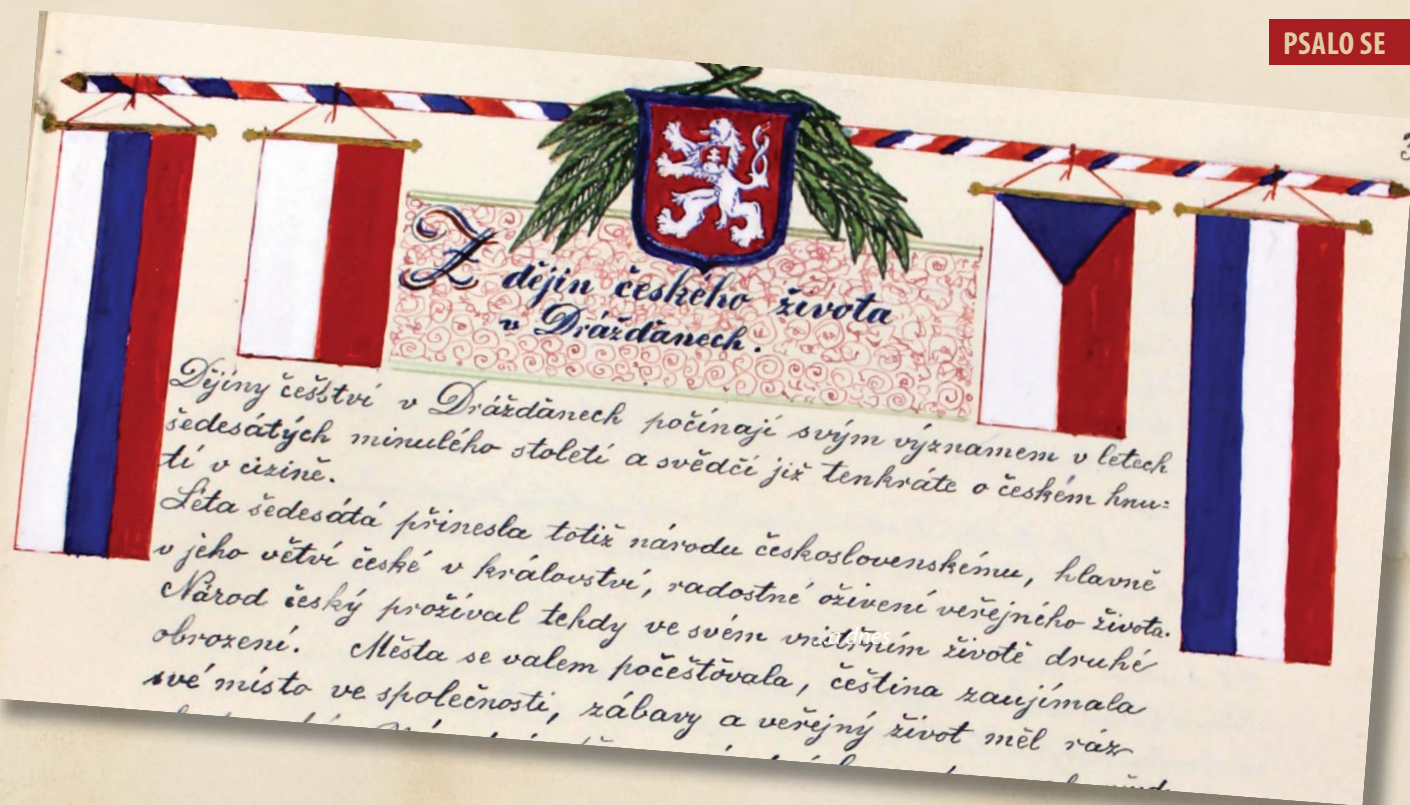 PSALO SE
Z dějin českého života
v Drážďanech.
Dějiny češství v Drážďanech počínají svým významem v letech
šedesátých minulého století a svědčí již tenkráte o českém hnu=
tí v cizině.
Léta šedesátá přinesla totiž národu československému, hlavně
v jeho větví české v království, radostné oživení veřejného života.
Národ český prožíval tehdy ve svém vnitřním životě druhé
obrození. Města se valem počešťovala, čeština zaujímala
své místo ve společnosti, zábavy a veřejný život měl ráz
a dnes